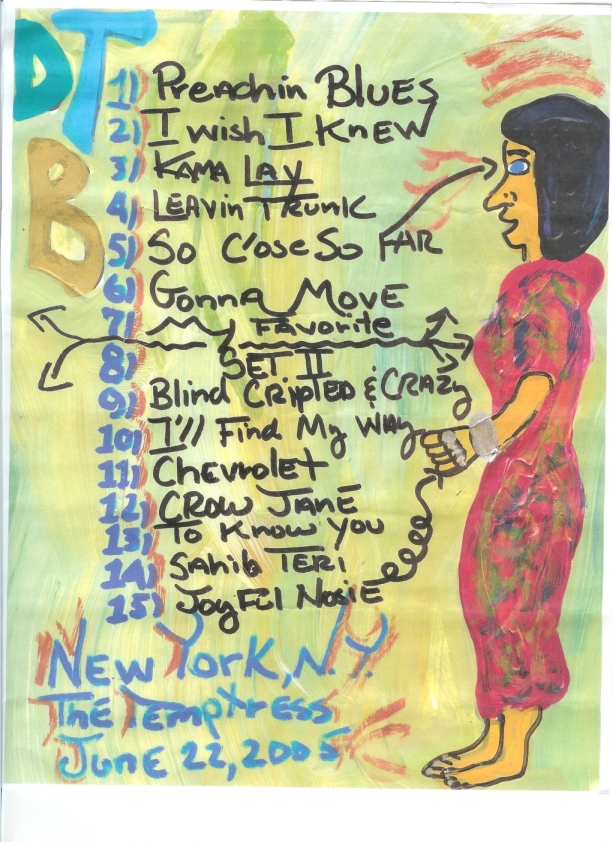 DTB
1) Preachin Blues
2) I wish I Knew
3) Kama Lay
4) Leavin Trunk
5) So C'ose So Far
6) Gonna Move
7) My Favorite
8) Set II
9) Blind Cripted & Crazy
10) I'll Find My Way
11) Chevrolet
12) Crow Jane
13) To Know You
14) Sahib Teri
15) Joyful Nosie
New York, N.Y.
The Temptress
June 22, 2005